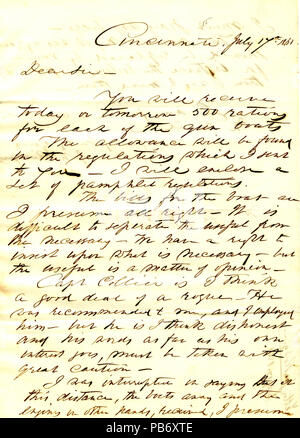 Cincinnati, July 17th 1861
Dear Sir -
You will receive
today or tomorrow 500 rations
for each of the gun boats
The allowance will be found
in the regulations which I sent
to you - I will enclose a
set of pamphlet regulations.
The bids for the boat are
I presume all right - It is
difficult to seperate the useful from
the necessary - We have a right to
insist upon what is necessary - but
the useful is a matter of opinion -
Capt is I think
a good deal of a rogue - He
was recommended to me, and I employed
him - but he is I think dishonest
and his acts as far as his own
interest goes, must be taken with
great caution -
I was interrupted in saying that in
this, distance, the boats away and the
engines in other hands, received, I presume
alamy
Image ID: PB6XTE
www.alamy.com